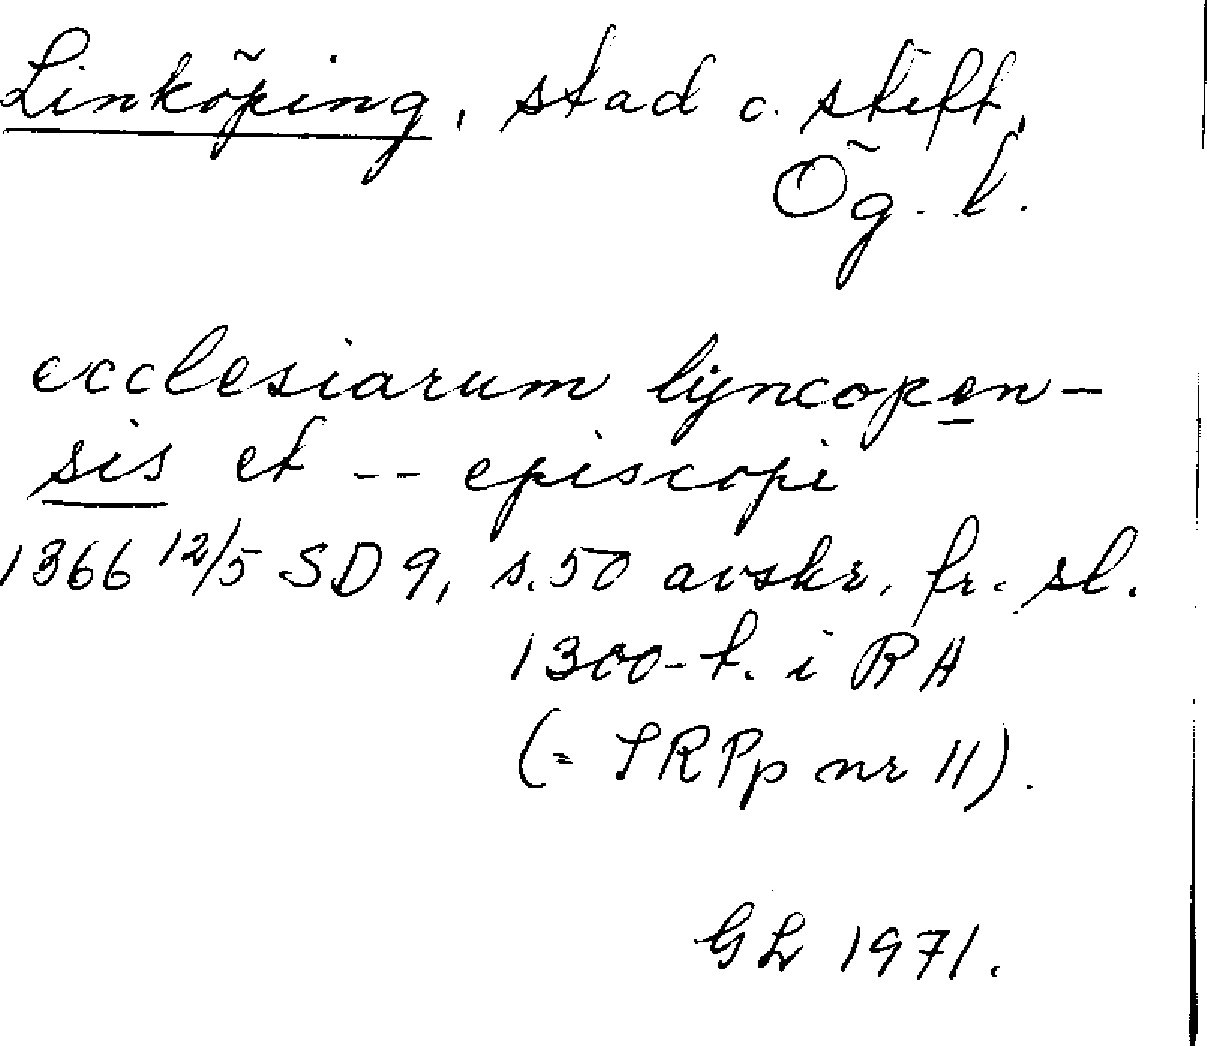 Linköping, stad o. stift,
Ög. l.
ecclesiarum lyncopen-
sis et -- episcopi
1366 12/5 SD 9, s. 50 avskr. fr. sl.
1300-t. i RA
(= SRPp nr 11).
GL 1971.